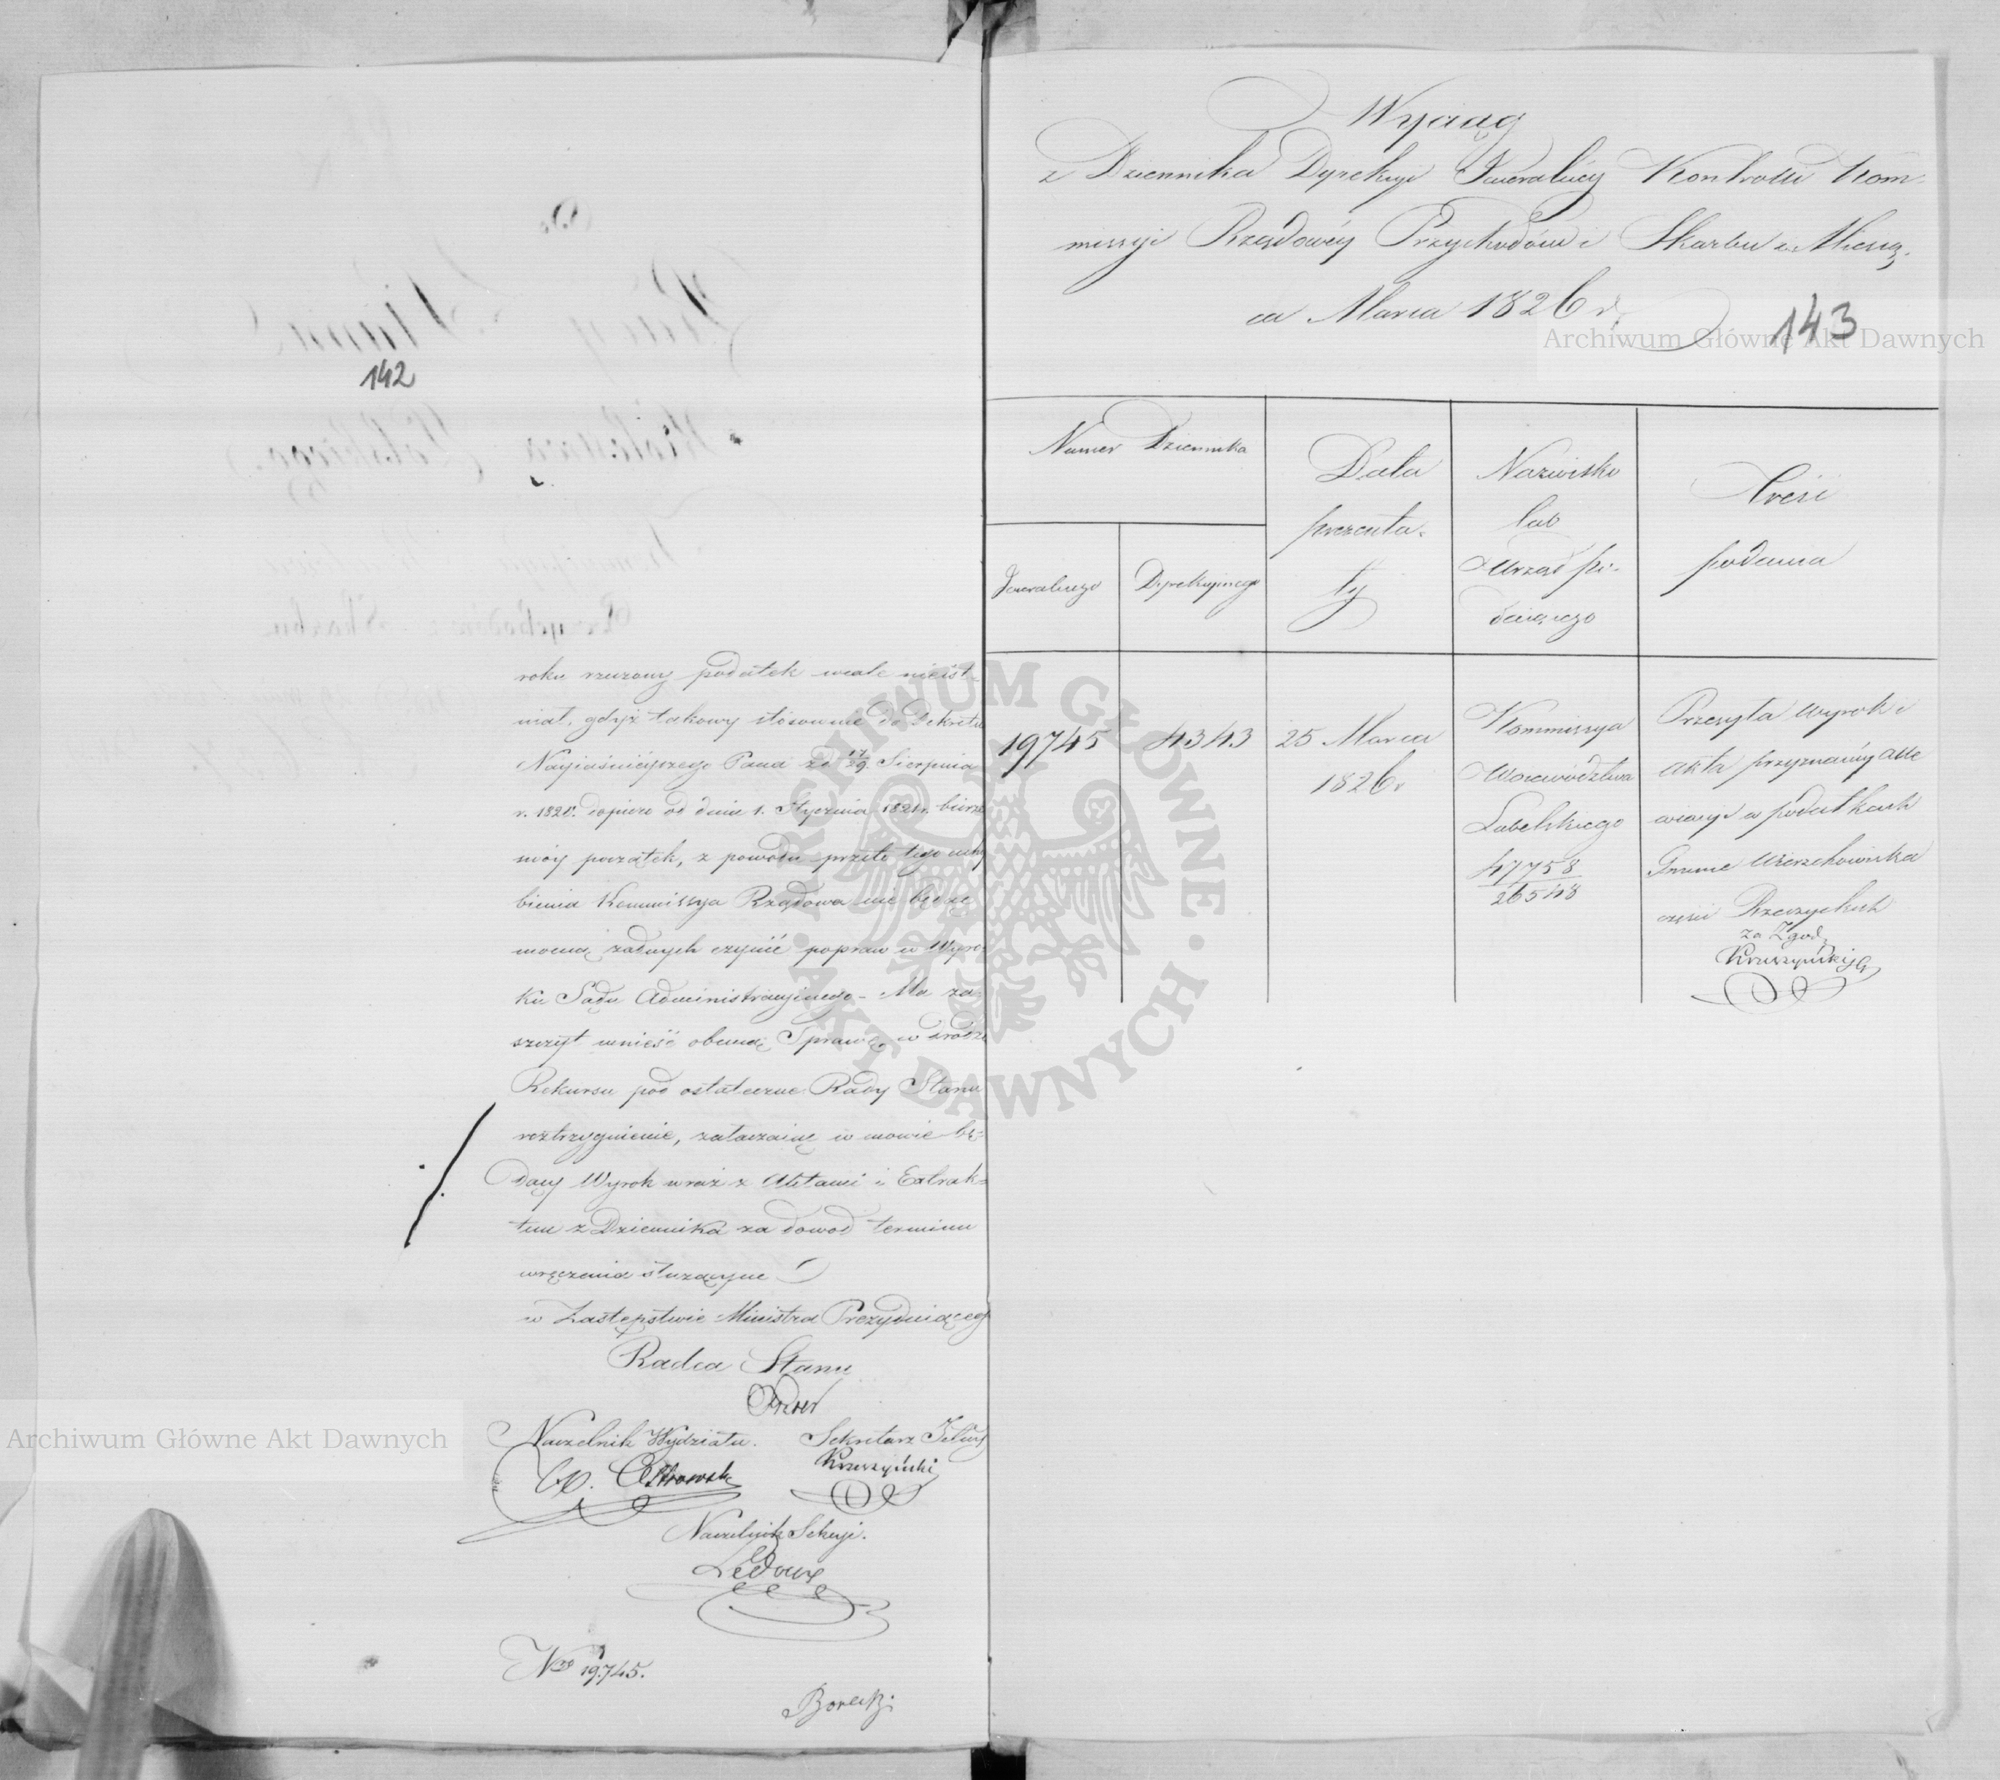 142
roku rzeczony podatek wcale nieist-
niał, gdyż takowy stosownie do Dekretu
Nayjaśnieyszego Pana zd 17/29. Sierpnia
r. 1820. dopiero od dnia 1. Stycznia 1821r. bierze
swóy początek, z powodu przeto tego uchy
bienia Kommissya Rządowa nie będąc
mocną żadnych czynić popraw w Wyro-
ku Sądu Administracyinego - Ma za-
szczyt wnieść obecną Sprawę w drodze
Rekursu pod ostateczne Rady Stanu
roztrzygnienie, załączaiąc w mowie bę-
dący Wyrok wraz z Aktami i Extrak-
tem z Dziennika za dowód terminu
wręczenia służącym
w Zastępstwie Ministra Prezyduiącego
Radca Stanu
Naczelnik Wydziału. Sekretarz Jlny
Ostrowski Kruszyński
Naczelnik Sekcyi.
Ledoux
Nro 19.745.
Borecki
Wyciąg
z Dziennika Dyrekcyi Jeneralnéy Kontrolli Kom-
missyi Rządowéy Przychodów i Skarbu z Miesią-
ca Marca 1826 r.
143
Numer Dziennika
Jeneralnego
Dyrekcyinego
Data
prezenta-
ty
Nazwisko
lub
Urząd po-
daiącego
Treść
podania
19745
4343
25 Marca
1826 r
Kommissya
Woiewództwa
Lubelskiego
47758
26548
Przesyła wyrok i
akta przyznanéy alle
wiacyi w podatkach
Gminie Wierzchowiska
części Rzeczyckich
Za Zgod.
Kruszyński
Archiwum Główne Akt Dawnych
Archiwum Główne Akt Dawnych
ARCHIWUM GŁÓWNE · AKT DAWNYCH ·